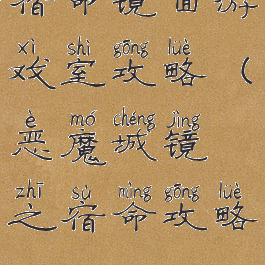 宿命镜面游
xì shì gōng lüè
戏室攻略（
è mó chéng jìng
恶魔城镜
zhī sù mìng gōng lüè
之宿命攻略